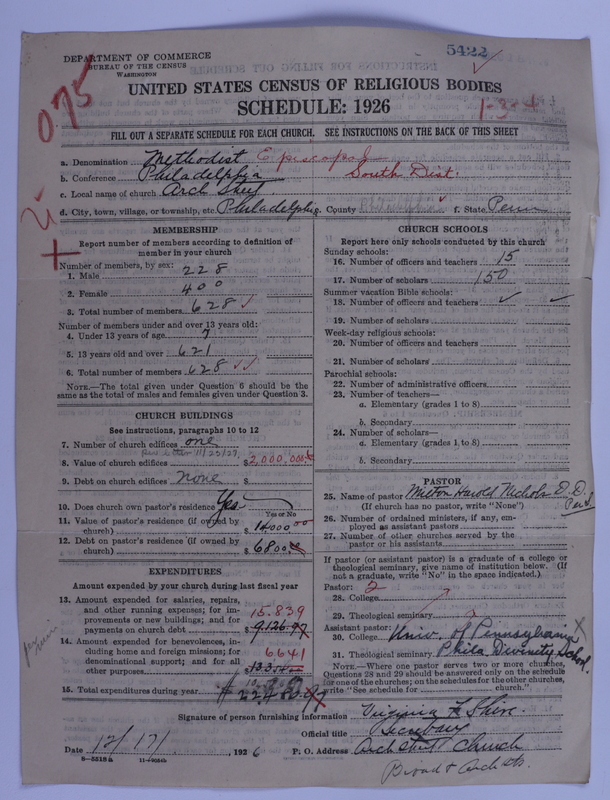 5422
DEPARTMENT OF COMMERCE
BUREAU OF THE CENSUS
WASHINGTON
UNITED STATES CENSUS OF RELIGIOUS BODIES
SCHEDULE: 1926
075
1-3-4
FILL OUT A SEPARATE SCHEDULE FOR EACH CHURCH. SEE INSTRUCTIONS ON THE BACK OF THIS SHEET
a. Denomination Methodist Episcopal
b. Conference Philadelphia South Dist.
c. Local name of church Arch Street
d. City, town, village, or township, etc. Philadelphia County f. State Penn
MEMBERSHIP
Report number of members according to definition of
member in your church
Number of members, by sex:
1. Male 228
2. Female 400
3. Total number of members 628
Number of members under and over 13 years old:
4. Under 13 years of age 7
5. 13 years old and over 621
6. Total number of members 628
NOTE.—The total given under Question 6 should be the
same as the total of males and females given under Question 3.
CHURCH BUILDINGS
See instructions, paragraphs 10 to 12
7. Number of church edifices one
8. Value of church edifices $2,000,000
9. Debt on church edifices none $
10. Does church own pastor's residence? Yes
Yes or No
11. Value of pastor's residence (if owned by
church) $14000.00
12. Debt on pastor's residence (if owned by
church) $6800
EXPENDITURES
Amount expended by your church during last fiscal year
13. Amount expended for salaries, repairs,
and other running expenses; for im-
provements or new buildings; and for
payments on church debt 15.839 $9,126.97
14. Amount expended for benevolences, in-
cluding home and foreign missions; for
denominational support; and for all
other purposes 6641
15. Total expenditures during year
CHURCH SCHOOLS
Report here only schools conducted by this church
Sunday schools:
16. Number of officers and teachers 15
17. Number of scholars 150
Summer vacation Bible schools:
18. Number of officers and teachers
19. Number of scholars
Week-day religious schools:
20. Number of officers and teachers
21. Number of scholars
Parochial schools:
22. Number of administrative officers
23. Number of teachers—
a. Elementary (grades 1 to 8)
b. Secondary
24. Number of scholars—
a. Elementary (grades 1 to 8)
b. Secondary
PASTOR
25. Name of pastor Milton Harold Nichols D.D.
(If church has no pastor, write "None")
26. Number of ordained ministers, if any, em-
ployed as assistant pastors
27. Number of other churches served by the
pastor or his assistants
If pastor (or assistant pastor) is a graduate of a college or
theological seminary, give name of institution below. (If
not a graduate, write "No" in the space indicated.)
Pastor: 2
28. College
29. Theological seminary
Assistant pastor:
30. College Univ. of Pennsylvania
31. Theological seminary Phila. Divinity School.
NOTE.—Where one pastor serves two or more churches,
Questions 28 and 29 should be answered only on the schedule
for one of the churches; on the schedules for the other churches,
write "See schedule for church."
Signature of person furnishing information Virginia
Official title Secretary
Date 12/17/ 1926 P. O. Address Arch Street Church
8—5518a Broad & Arch Sts.